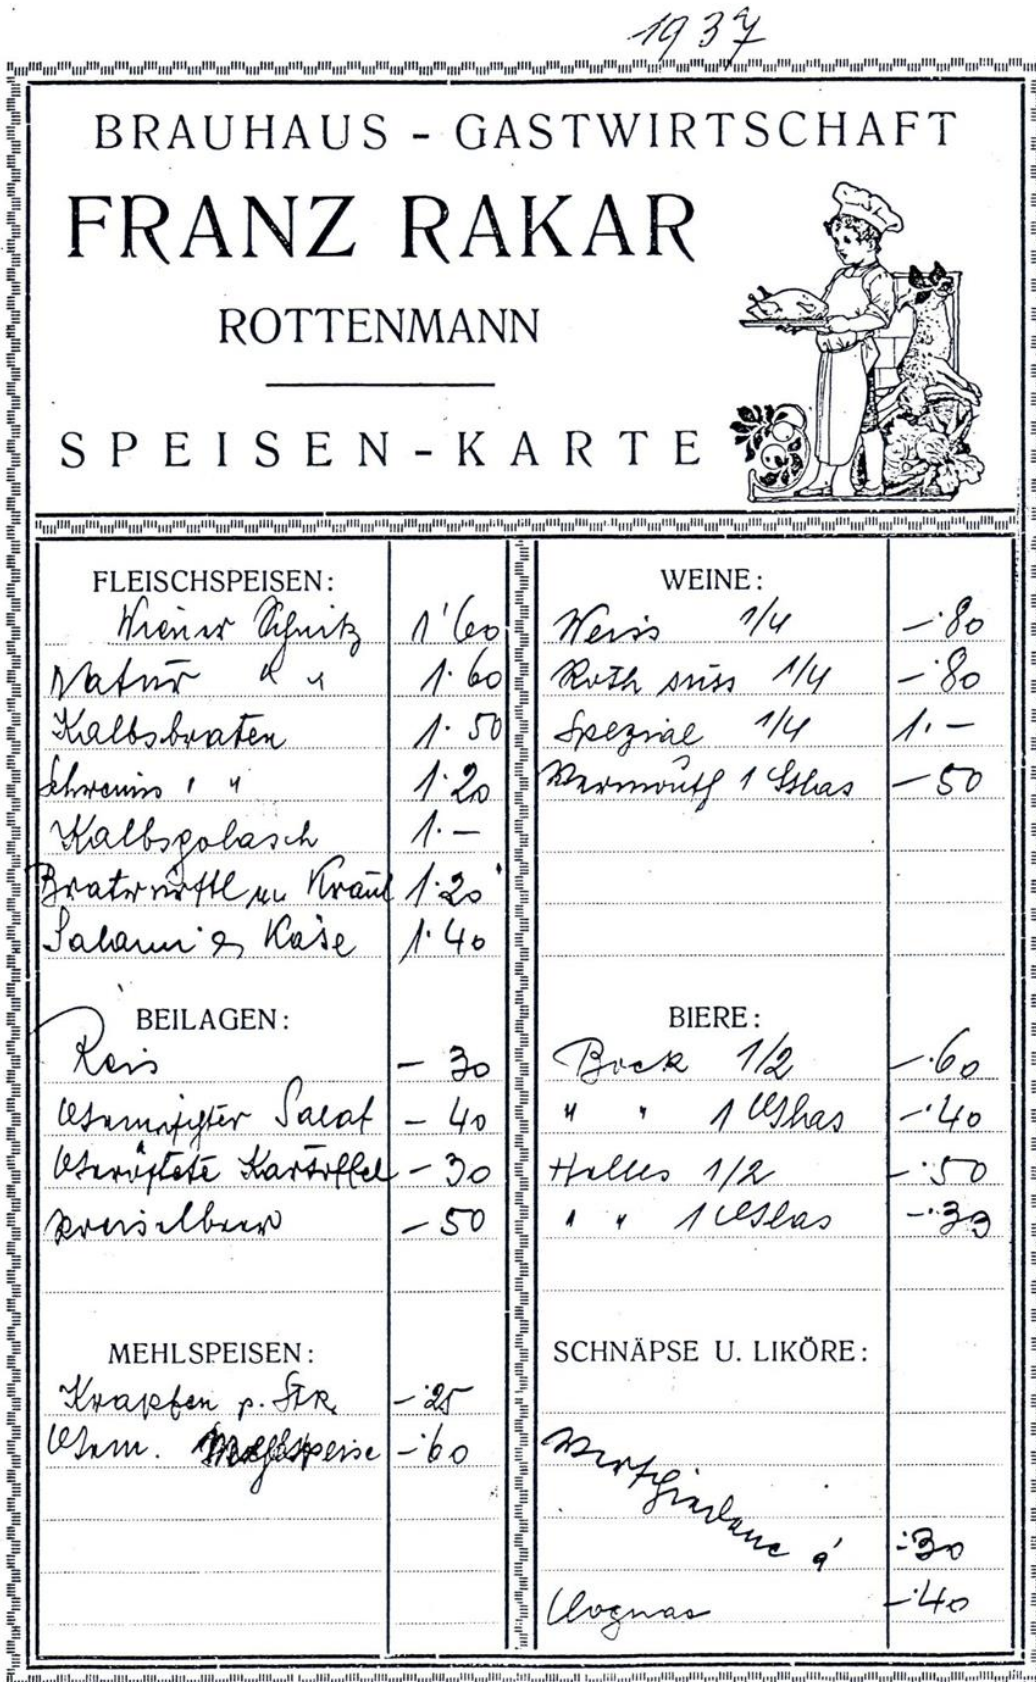 1937
BRAUHAUS - GASTWIRTSCHAFT
FRANZ RAKAR
ROTTENMANN
SPEISEN-KARTE
FLEISCHSPEISEN:
Wiener Schnitz 1'60
Natur " " 1.60
Kalbsbraten 1.50
Schweins " " 1.20
Kalbsgolasch 1.—
Bratwürstl m Kraut 1.20
Salami & Käse 1.40
BEILAGEN:
Reis —30
Gemischter Salat —40
Geröstete Kartoffel —30
Preiselbeer —50
MEHLSPEISEN:
Krapfen p. Stk. —.25
Gem. Mehlspeise —.60
WEINE:
Weiss 1/4 —.80
Roth süss 1/4 —.80
Spezial 1/4 1.—
Wermouth 1 Glas —50
BIERE:
Bock 1/2 —.60
" " 1 Glas —.40
Helles 1/2 —.50
" " 1 Glas —.33
SCHNÄPSE U. LIKÖRE:
à —.30
Cognac —.40